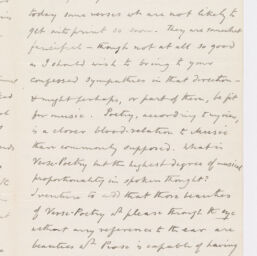 today some verses wh are not likely to
get into print so soon. They are somewhat
fanciful – though not at all so good
as I should wish to bring to your
confessed sympathies in that direction –
& might perhaps, or part of them, be fit
for music. Poetry, according to my view,
is a closer blood-relation to Music
than commonly supposed. What is
Verse-Poetry but the highest degree of musical
proportionality in spoken thought?
I venture to add that those beauties
of Verse-Poetry wh please through the eye
without any reference to the ear are
beauties wh Prose is capable of having